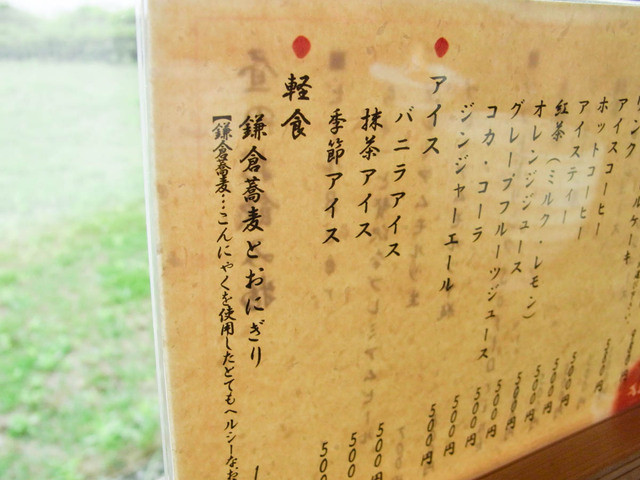 リンク
ルケーキ
アイスコーヒー
ホットコーヒー 500円
アイスティー 500円
紅茶(ミルク・レモン) 500円
オレンジジュース 500円
グレープフルーツジュース 500円
コカ・コーラ 500円
ジンジャーエール 500円
アイス
バニラアイス 500円
抹茶アイス 500
季節アイス 500
軽食
鎌倉蕎麦とおにぎり
【鎌倉蕎麦…こんにゃくを使用したとてもヘルシーなお